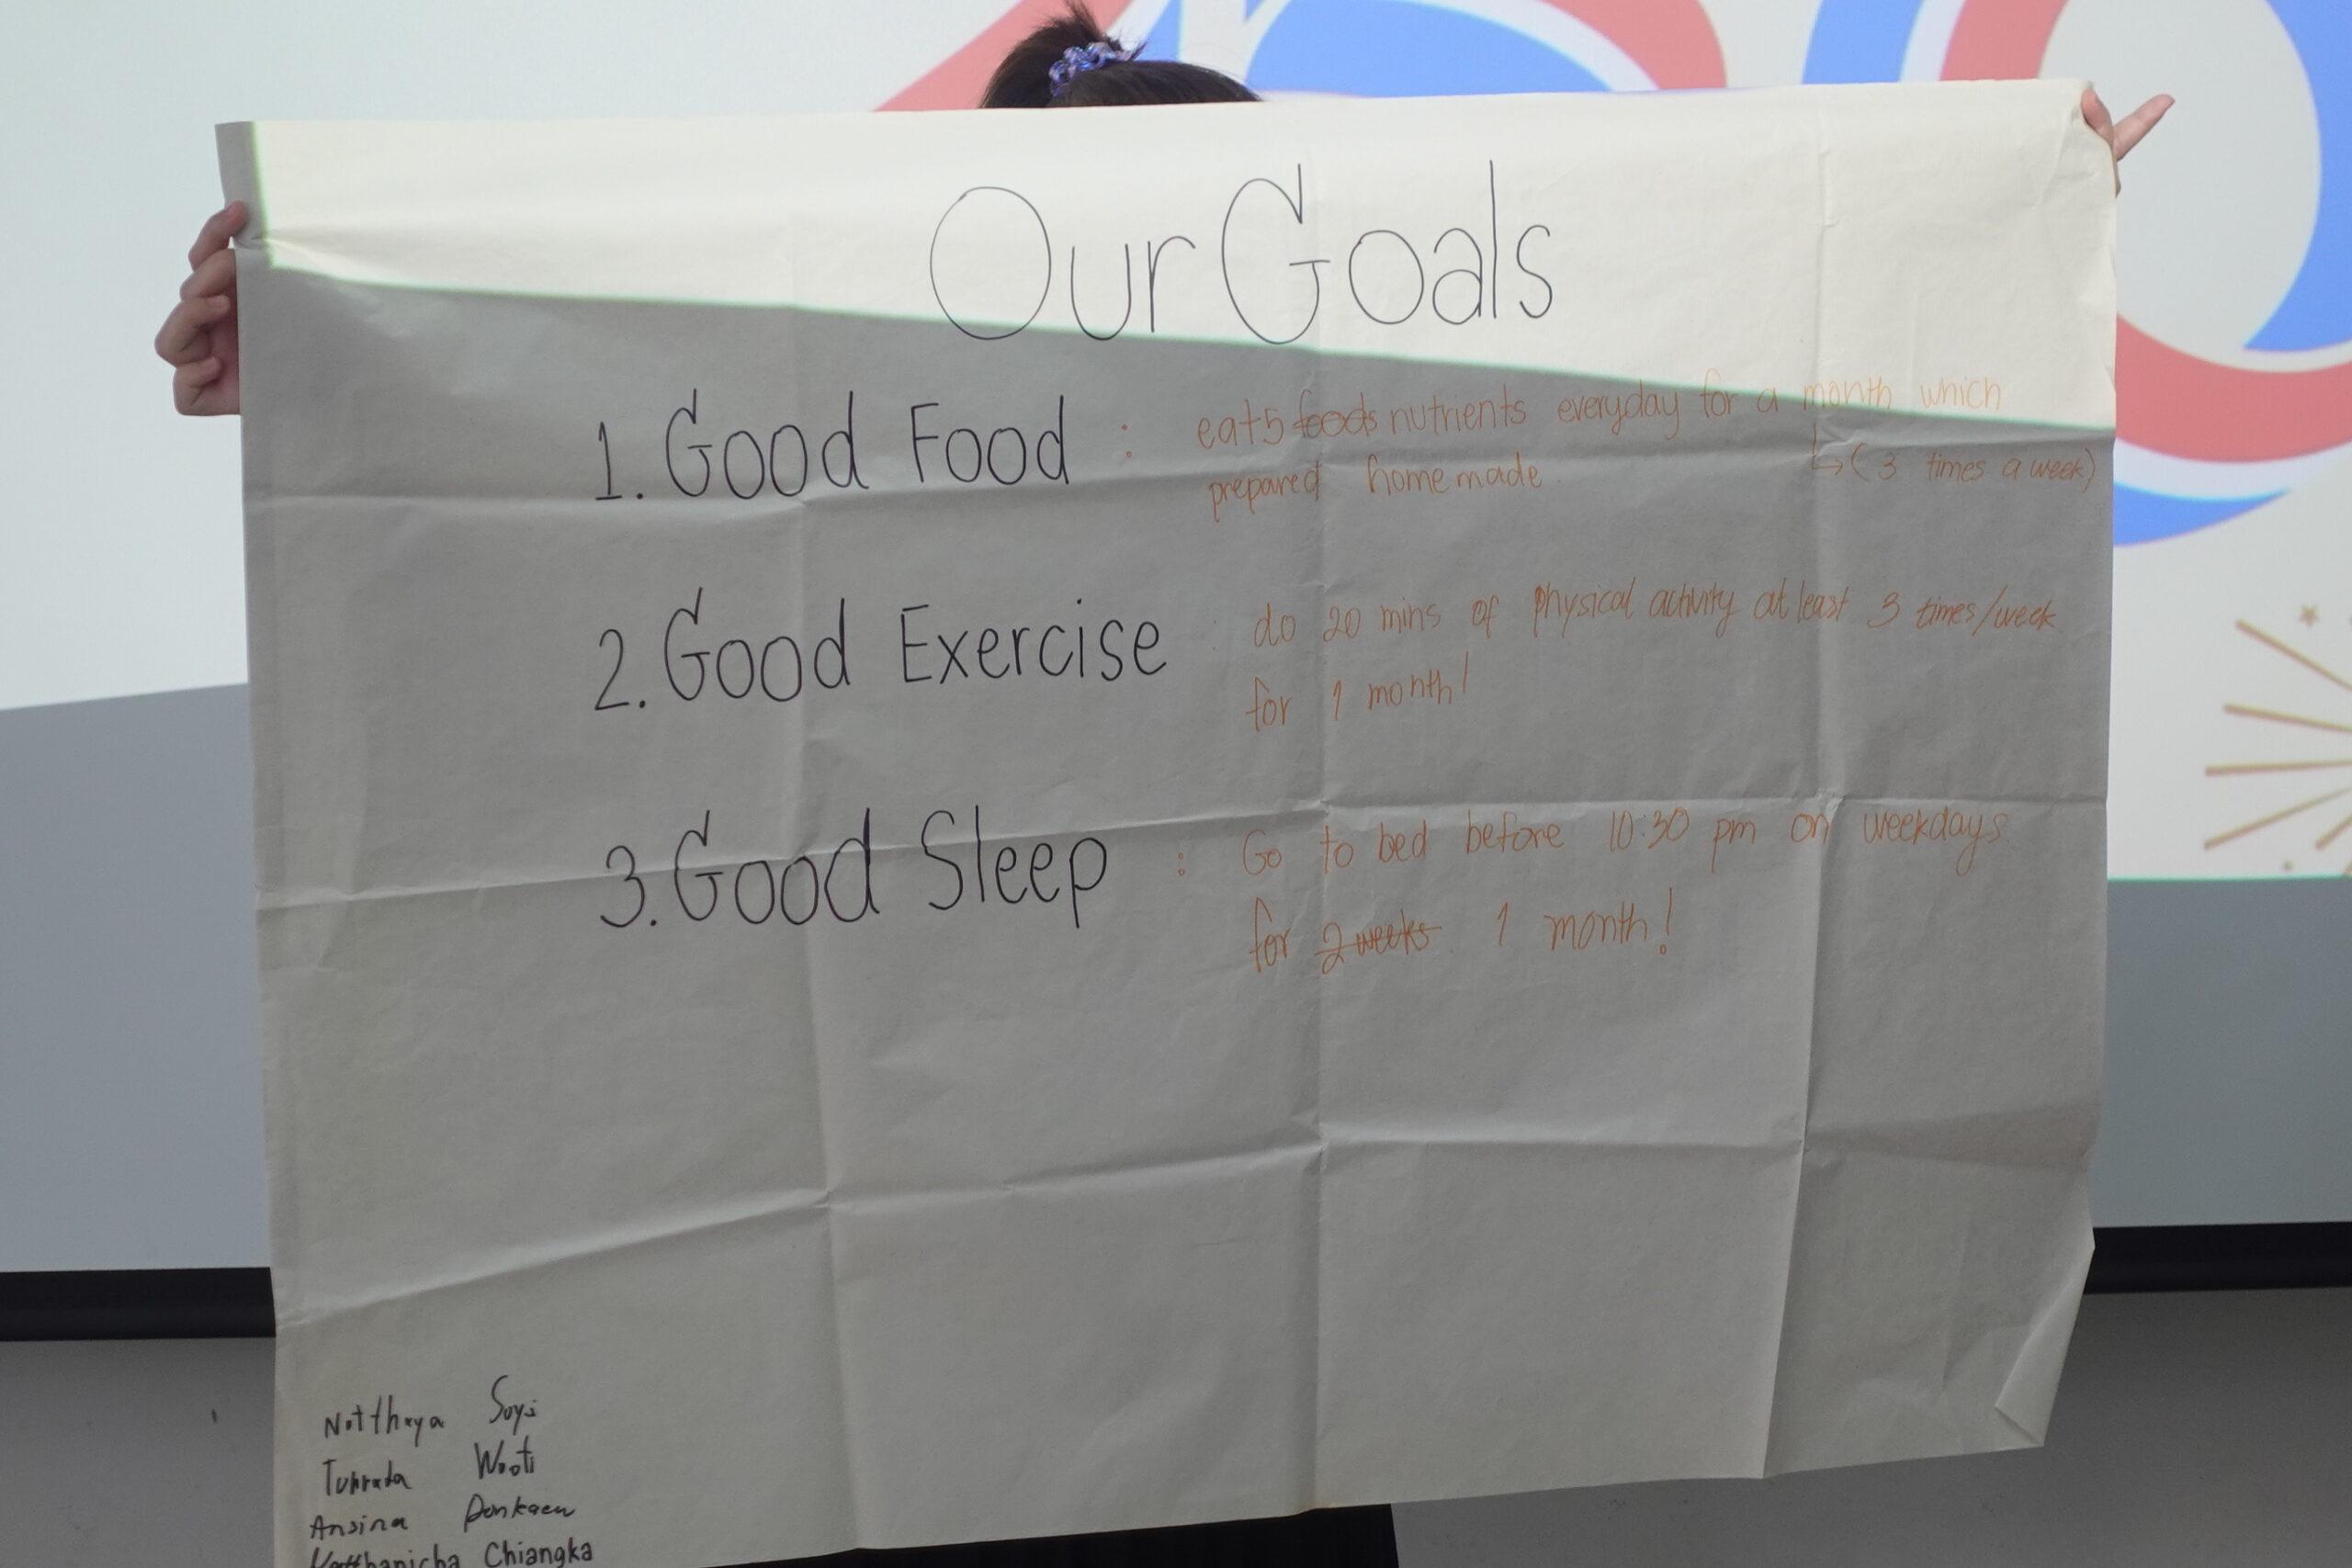 Our Goals
1. Good Food : eat 5 foods nutrients everyday for a month which
↳ (3 times a week)
prepared homemade.
2. Good Exercise : do 20 mins of physical activity at least 3 times/week
for 1 month!
3. Good Sleep : Go to bed before 10:30 pm on weekdays
for 2 weeks 1 month!
Natthaya
Ansina Donkaew
Chiangka